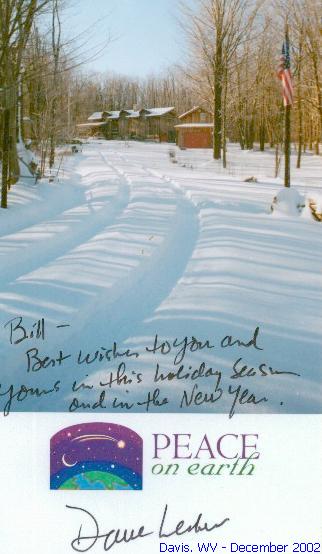 Bill –
Best wishes to you and
yours in this holiday season
and in the New Year.
PEACE
on earth
Dave
Davis, WV - December 2002